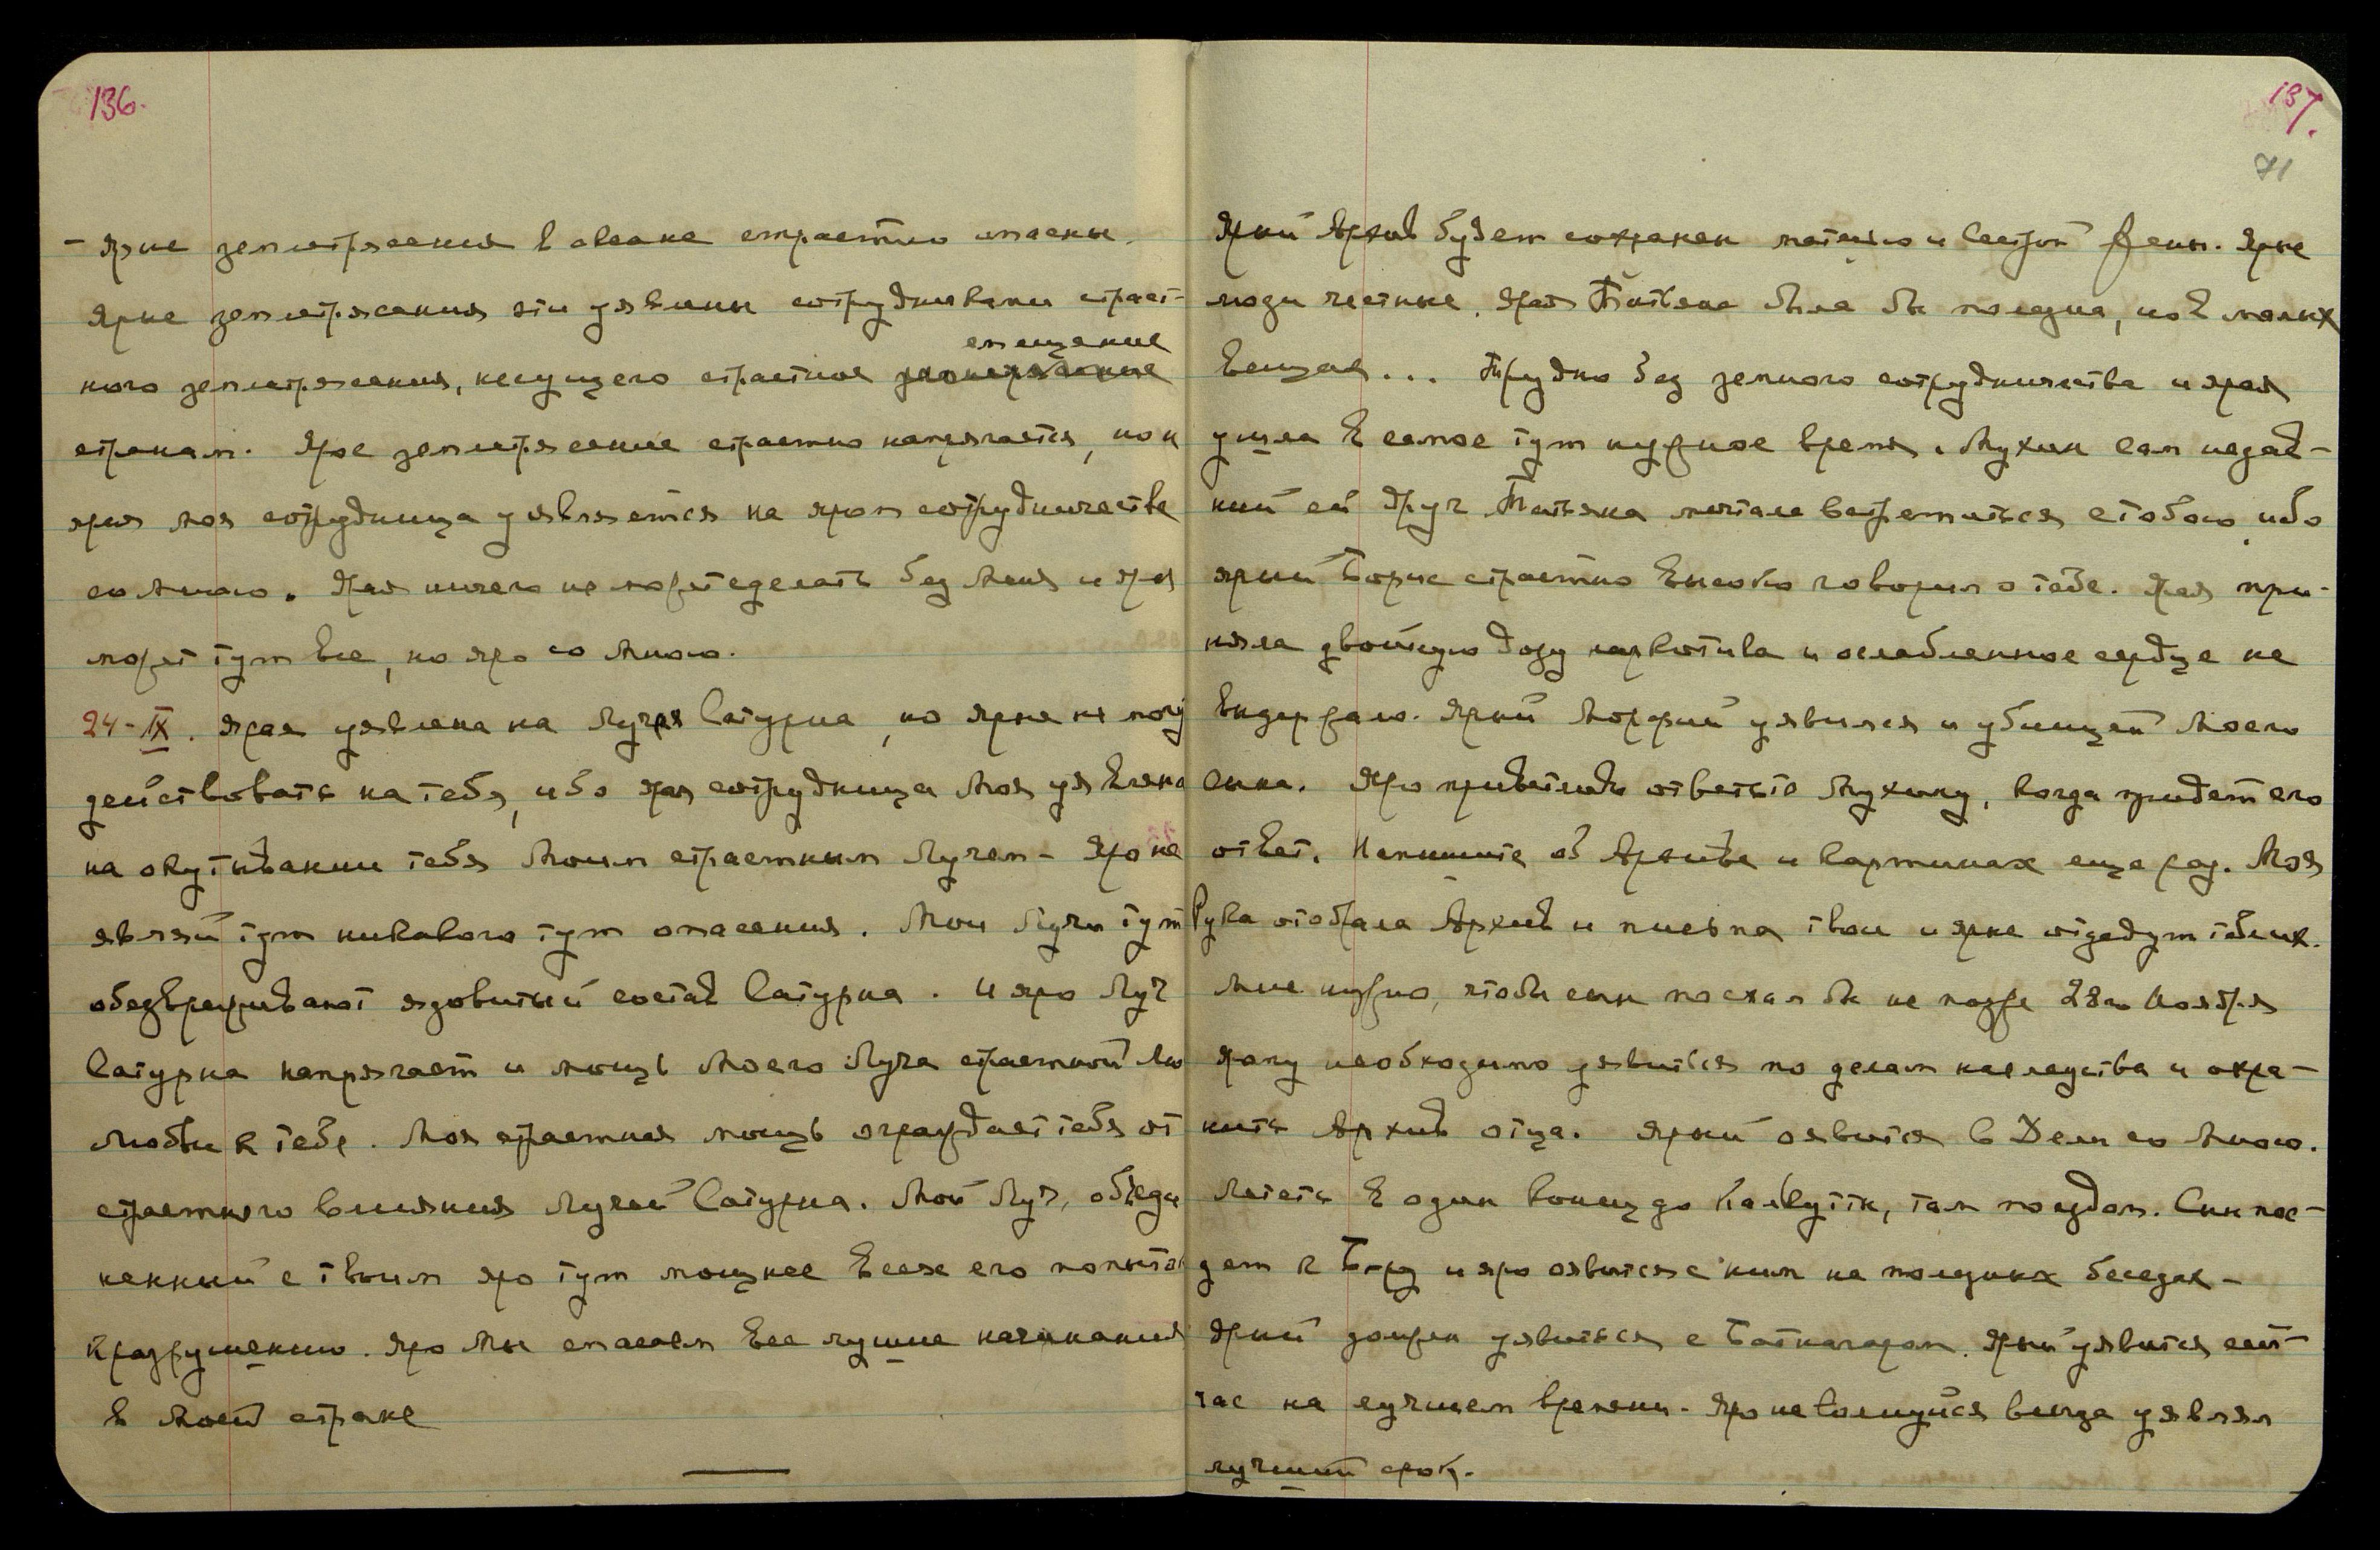 136.
- Ярые землетрясения в океане страстно опасны.
Ярые землетрясения эти уявлены сотрудниками страст-
смещение
ного землетрясения, несущего страстное
странам. Ярое землетрясение страстно напрягается, но и
ярая моя сотрудница уявляется на яром сотрудничестве
со Мною. Ярая ничего не может сделать без Меня и ярая
может тут все, но яро со Мною.
24-IX. Ярая уявлена на Лучах Сатурна, но ярые не могу
действовать на тебя, ибо ярая сотрудница Моя уявлена
на окутывании тебя Моим страстным Лучем - Яро не
являй тут никакого тут опасения. Мои Лучи тут
обезвреживают ядовитый состав Сатурна. И яро Луч
Сатурна напрягает и мощь Моего Луча страстной Мо
Любви к тебе. Моя страстная мощь ограждает тебя от
страстного влияния Лучей Сатурна. Мой Луч, объеди
ненный с твоим яро тут мощнее всех его попыток
к разрушению. Яро Мы спасаем все лучшие начинания
в Моей стране
137.
71
Ярый Архив будет сохранен матерью и сестрой жены. Ярые
люди честные. Ярая Татьяна была бы полезна, но в малых
вещах... Трудно без земного сотрудничества и ярая
ушла в самое тут нужное время. Мухин сам недав-
ний ей друг. Татьяна мечтала встретиться с тобою, ибо
ярый Борис страстно высоко говорил о тебе. Ярая при-
няла двойную дозу наркотика и ослабленное сердце не
выдержало. Ярый Морфий уявился и убийцей Моего
сына. Яро приветливо ответьте Мухину, когда придет его
ответ. Напишите об Архиве и картинах еще раз. Моя
Рука отобрала Архив и письма твои и ярые отдадут тебе их.
Мне нужно, чтобы сын поехал бы не позже 28го Ноября
Ярому необходимо уявиться по делам наследства и охра-
нить Архив отца. Ярый оявится в Дели со Мною.
Лететь в один конец до Калькутты, там поездом. Сын пое-
дет к Берд и яро оявится с ним на полезных беседах -
Ярый должен уявиться с Батнагаром. Ярый уявится сей-
час на лучшем времени. Яро не волнуйся всегда уявлял
лучший срок.